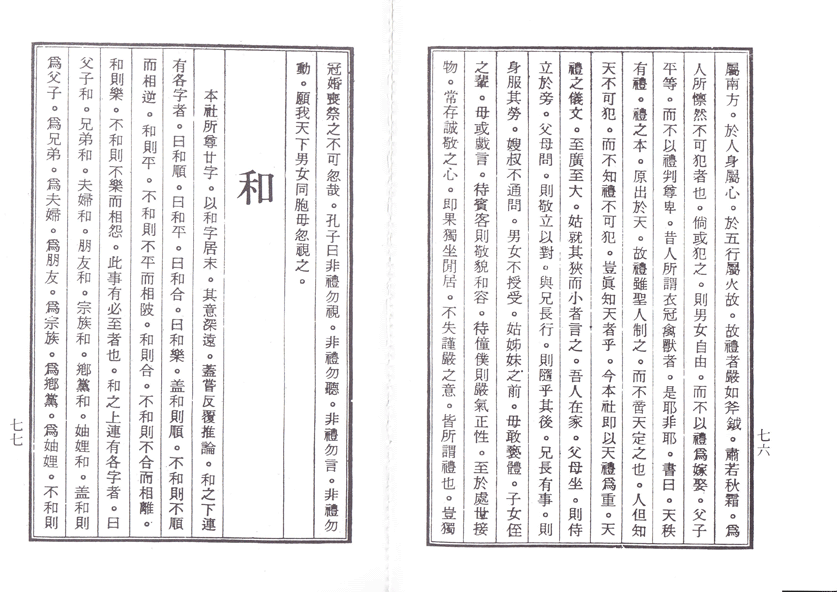 屬南方。於人身屬心。於五行屬火故。故禮者嚴如斧鉞。肅若秋霜。爲
人所懔然不可犯者也。倘或犯之。則男女自由。而不以禮爲嫁娶。父子
平等。而不以禮判尊卑。昔人所謂衣冠禽獸者。是耶非耶。書曰。天秩
有禮。禮之本。原出於天。故禮雖聖人制之。而不啻天定之也。人但知
天不可犯。而不知禮不可犯。豈眞知天者乎。今本社即以天禮爲重。天
禮之儀文。至廣至大。姑就其狹而小者言之。吾人在家。父母坐。則侍
立於旁。父母問。則敬立以對。與兄長行。則隨乎其後。兄長有事。則
身服其勞。嫂叔不通問。男女不授受。姑姊妹之前。毋敢褻體。子女侄
之輩。毋或戱言。待賓客則敬貌和容。待僮僕則嚴氣正性。至於處世接
物。常存誠敬之心。即果獨坐閒居。不失謹嚴之意。皆所謂禮也。豈獨
七六
冠婚喪祭之不可忽哉。孔子曰非禮勿視。非禮勿聽。非禮勿言。非禮勿
動。願我天下男女同胞毋忽視之。
和
本社所尊廿字。以和字居末。其意深遠。蓋嘗反覆推論。和之下連
有各字者。曰和順。曰和平。曰和合。曰和樂。盖和則順。不和則不順
而相逆。和則平。不和則不平而相陂。和則合。不和則不合而相離。
和則樂。不和則不樂而相怨。此事有必至者也。和之上連有各字者。曰
父子和。兄弟和。夫婦和。朋友和。宗族和。鄉黨和。妯娌和。盖和則
爲父子。爲兄弟。爲夫婦。爲朋友。爲宗族。爲鄉黨。爲妯娌。不和則
七七